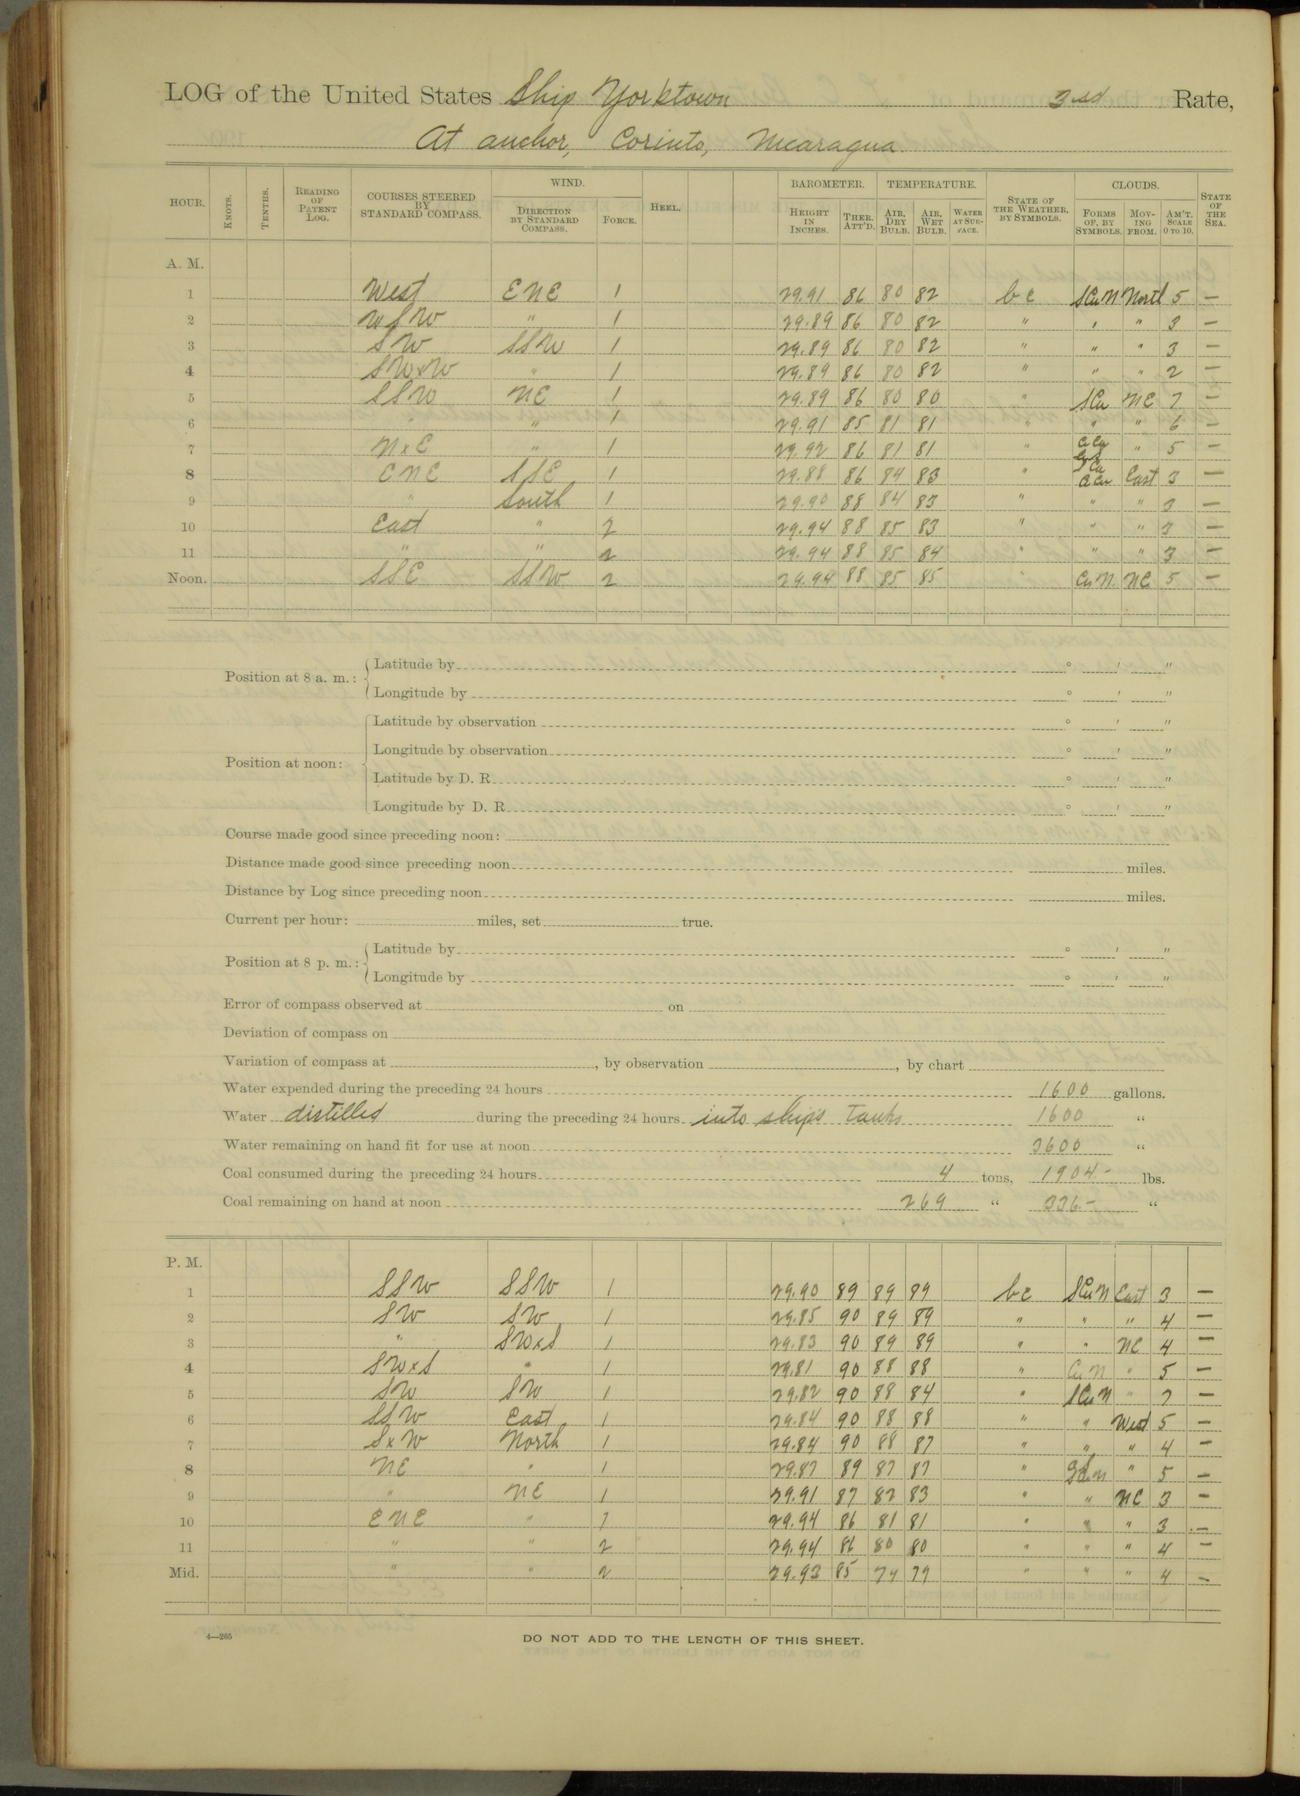 LOG of the United States Ship Yorktown 3rd Rate,
At anchor, Corinto, Nicaragua.
HOUR. KNOTS. TENTHS. READING OF PATENT LOG. COURSES STEERED BY STANDARD COMPASS. WIND. DIRECTION BY STANDARD COMPASS. FORCE. HEEL. BAROMETER. HEIGHT IN INCHES. THER. ATT'D. TEMPERATURE. AIR, DRY BULB. AIR, WET BULB. WATER AT SURFACE. STATE OF THE WEATHER, BY SYMBOLS. CLOUDS. FORMS OF, BY SYMBOLS. MOVING FROM. AM'T. SCALE 0 TO 10. STATE OF THE SEA.
A. M.
1 West ENE 1 29.91 86 80 82 bc SCuN North 5 —
2 WSW " 1 29.89 86 80 82 " " " 3 —
3 SW SSW 1 29.89 86 80 82 " " " 3 —
4 SWxW " 1 29.89 86 80 82 " " " 2 —
5 SSW NE 1 29.89 86 80 80 " SCu NE 7 —
6 " " 1 29.91 85 81 81 " " " 6 —
7 NxE " 1 29.92 86 81 81 " " 5 —
8 ENE SSE 1 29.88 86 84 83 " SCu ACu East 3 —
9 " South 1 29.90 88 84 83 " " " 3 —
10 East " 2 29.94 88 85 83 " " " 3 —
11 " " 2 29.94 88 85 84 " " " 3 —
Noon. SSE SSW 2 29.94 88 85 85 " CuN. NE 5 —
Position at 8 a. m.: Latitude by ° ' "
Longitude by ° ' "
Position at noon: Latitude by observation ° ' "
Longitude by observation ° ' "
Latitude by D. R. ° ' "
Longitude by D. R. ° ' "
Course made good since preceding noon:
Distance made good since preceding noon miles.
Distance by Log since preceding noon miles.
Current per hour: miles, set true.
Position at 8 p. m.: Latitude by ° ' "
Longitude by ° ' "
Error of compass observed at on
Deviation of compass on
Variation of compass at , by observation , by chart
Water expended during the preceding 24 hours 1600 gallons.
Water distilled during the preceding 24 hours into ships tanks 1600 "
Water remaining on hand fit for use at noon 3600 "
Coal consumed during the preceding 24 hours 4 tons, 1904- lbs.
Coal remaining on hand at noon 269 " 336.- "
P. M.
1 SSW SSW 1 29.90 89 89 89 bc SCuN East 3 —
2 SW SW 1 29.85 90 89 89 " " " 4 —
3 " SWxS 1 29.83 90 89 89 " " NE 4 —
4 SWxS " 1 29.81 90 88 88 " CuN " 5 —
5 SW SW 1 29.82 90 88 84 " SCuN " 7 —
6 SSW East 1 29.84 90 88 88 " " West 5 —
7 SxW North 1 29.84 90 88 87 " " " 4 —
8 NE " 1 29.87 89 87 87 " " 5 —
9 " NE 1 29.91 87 82 83 " " NE 3 —
10 ENE " 1 29.94 86 81 81 " " " 3 —
11 " " 2 29.94 86 80 80 " " " 4 —
Mid. " " 2 29.93 85 79 79 " " " 4 —
4—265
DO NOT ADD TO THE LENGTH OF THIS SHEET.